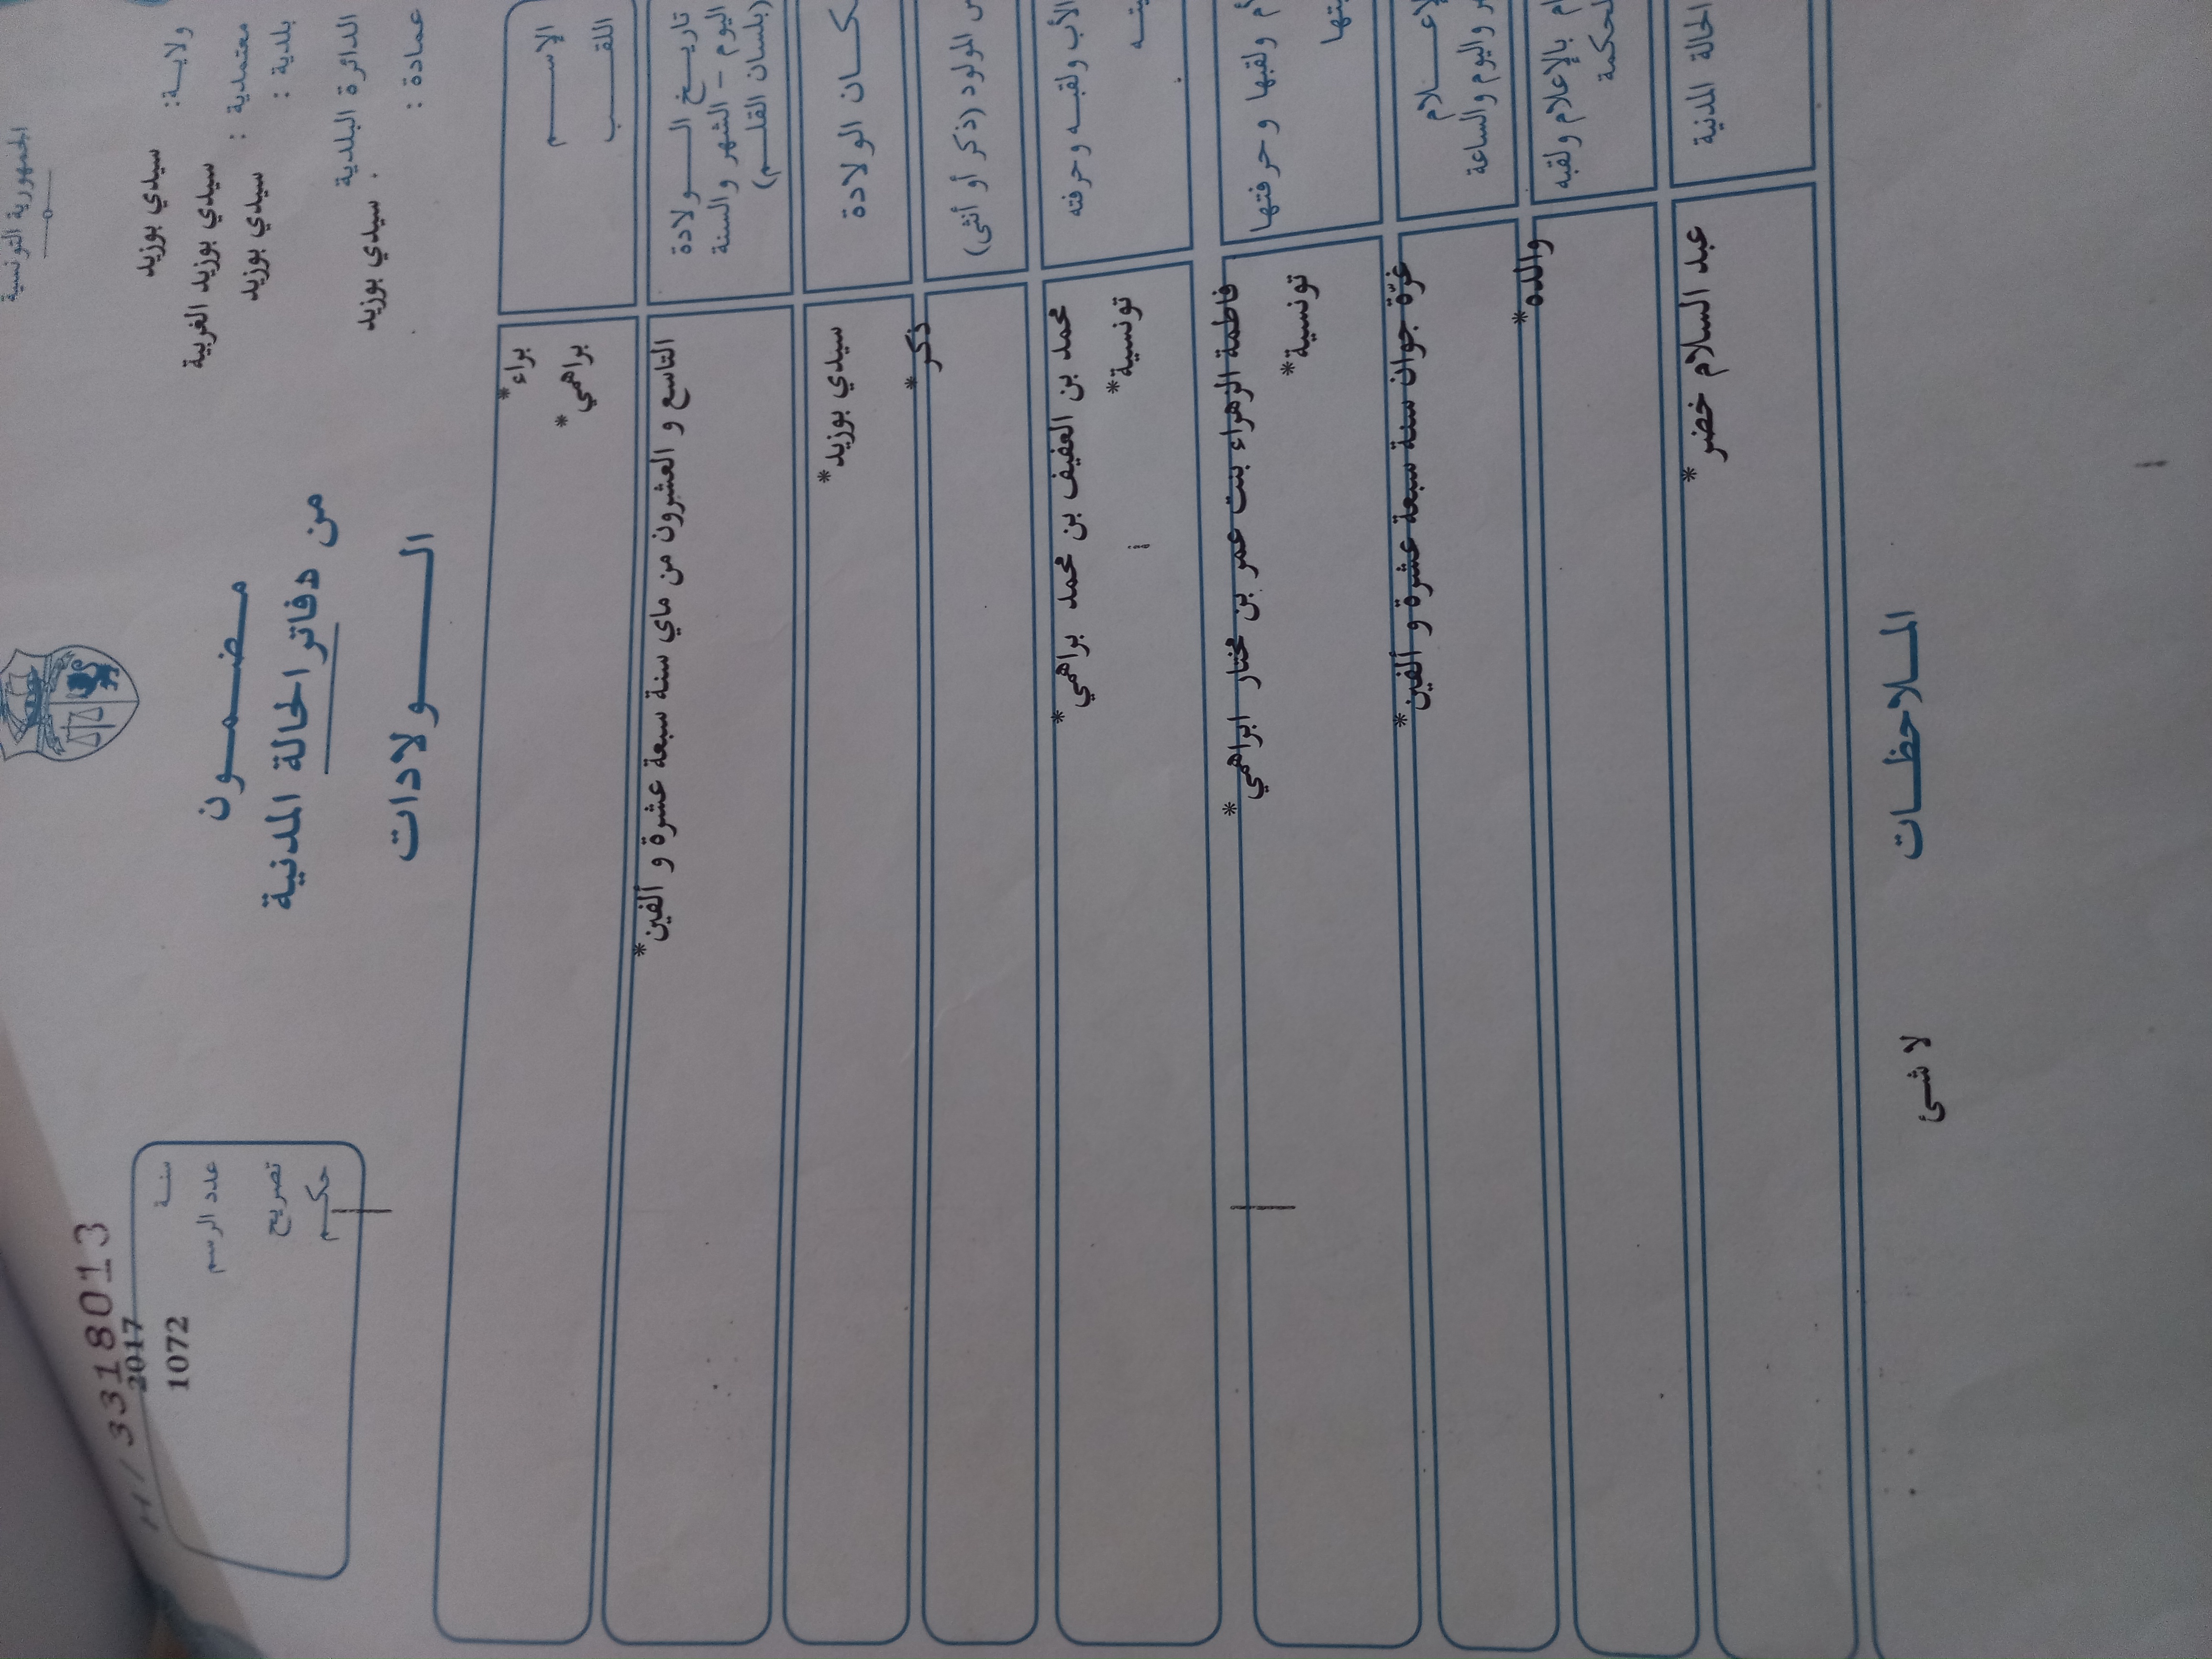 الجمهورية التونسية
ولايـة: سيدي بوزيد
معتمدية : سيدي بوزيد الغربية
بلدية : سيدي بوزيد
الدائرة البلدية سيدي بوزيد
عمادة :
مـضـمـون
من دفاتر الحالة المدنية
الـولادات
H/3318013
سنـة 2017
عدد الرسم 1072
تصريح
حكـم
الإســم براء*
اللقـب براهمي*
تاريـخ الــولادة
اليوم – الشهر والسنة
(بلسان القلـم)
التاسع و العشرون من ماي سنة سبعة عشرة و ألفين*
كـان الولادة سيدي بوزيد*
س المولود (ذكر أو أنثى) ذكر*
الأب ولقبـه وحرفته محمد بن العفيف بن محمد براهمي*
يتـه تونسية*
أم ولقبها وحرفتها فاطمة الزهراء بنت عمر بن مختار ابراهمي*
يتها تونسية*
لإعـلام
ر واليوم والساعة
غرّة جوان سنة سبعة عشرة و ألفين*
ام بالإعلام ولقبه والده*
لحكمة
الحالة المدنية عبد السلام خضر*
المـلاحظـات
لا شئ